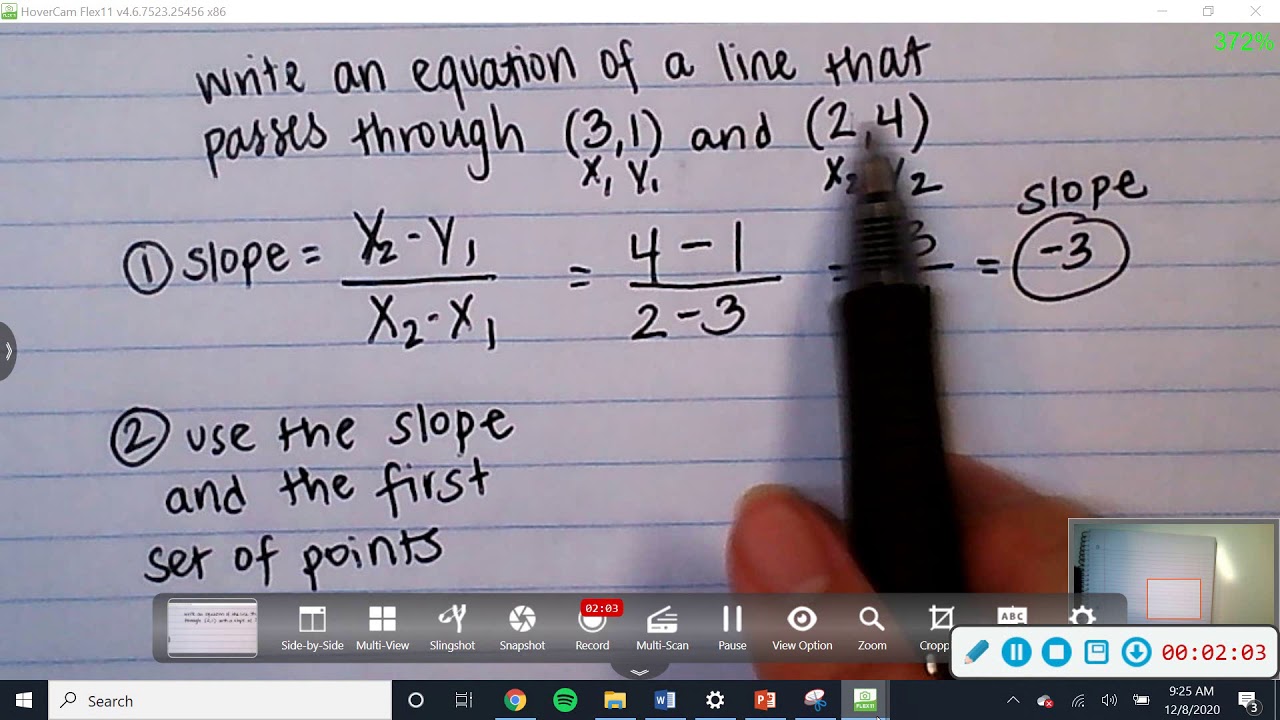 HoverCam Flex11 v4.6.7523.25456 x86
372%
write an equation of a line that
passes through (3,1) and (2,4)
X1 Y1 X2 Y2
slope
① slope = Y2-Y1 / X2-X1 = 4-1 / 2-3 = 3 = -3
② use the slope
and the first
set of points
02:03
Side-by-Side Multi-View Slingshot Snapshot Record Multi-Scan Pause View Option Zoom
ABC
00:02:03
Search
FLEX11
9:25 AM
12/8/2020
3